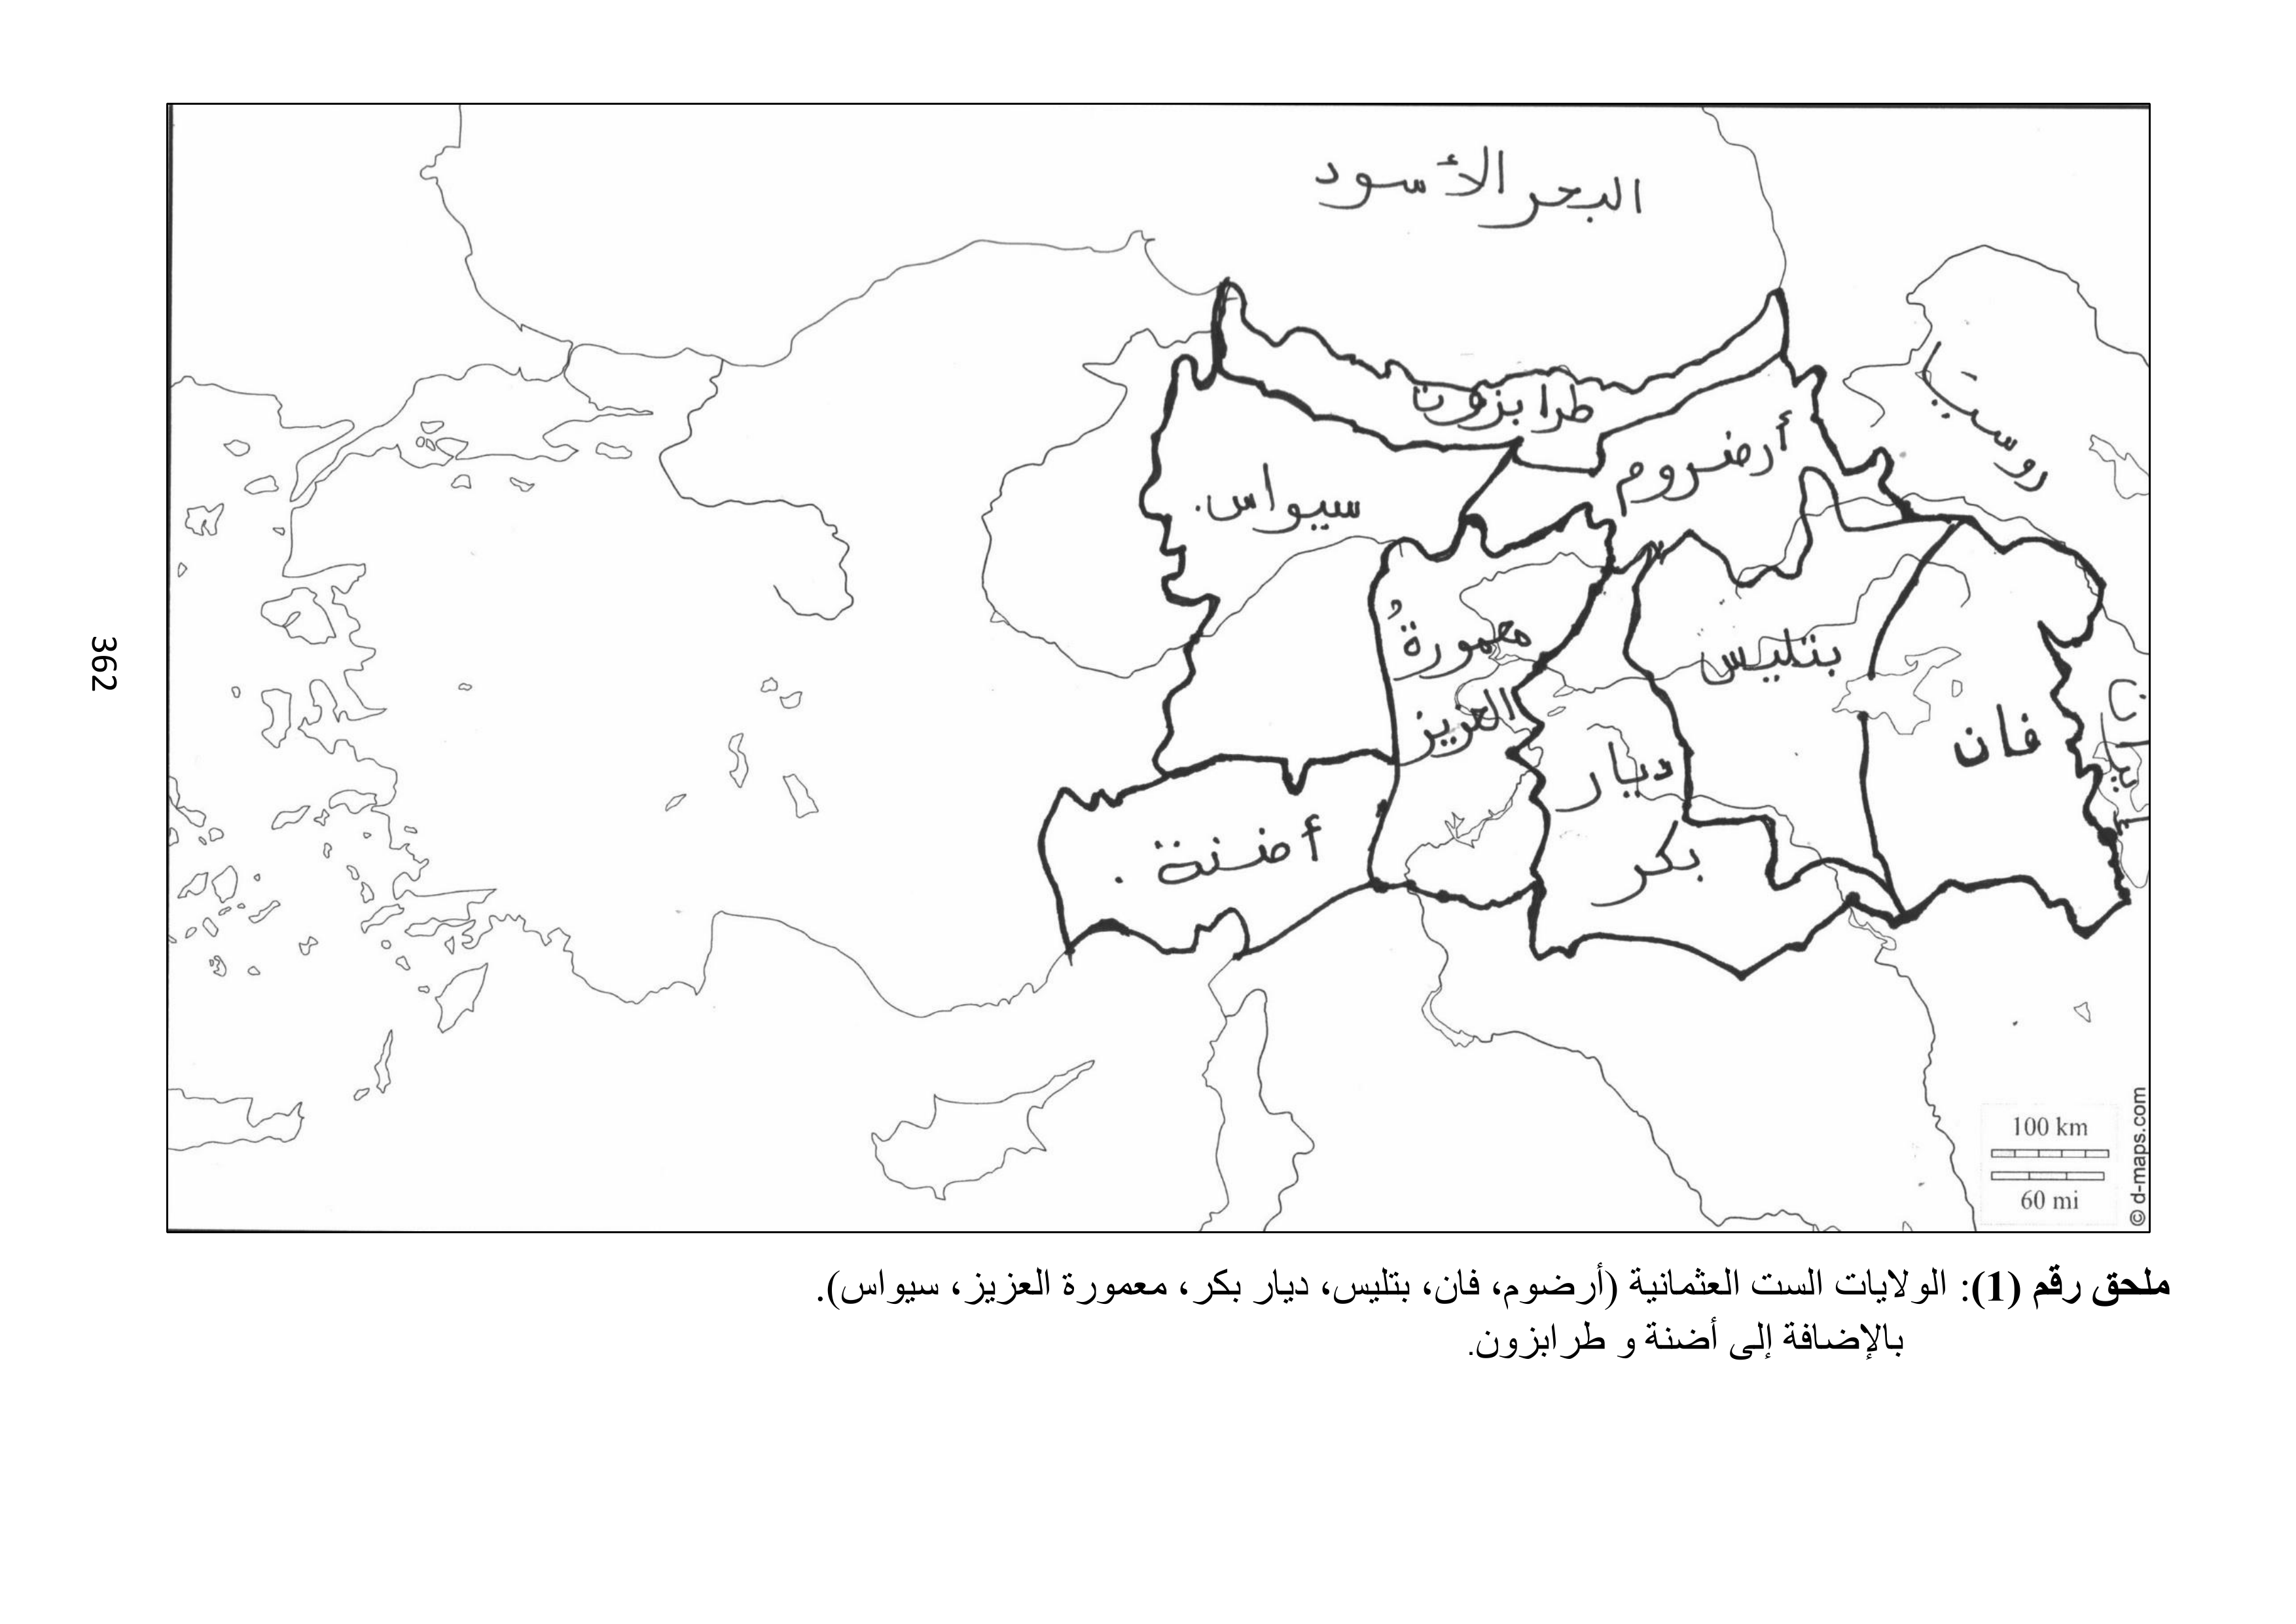 البحر الأسود
طرابزون
أرضروم
روسيا
سيواس.
معمورةُ
العزيز
بتليس
فان
ديار
بكر
أضنة.
100 km
60 mi
© d-maps.com
ملحق رقم (1): الولايات الست العثمانية (أرضوم، فان، بتليس، ديار بكر، معمورة العزيز، سيواس).
بالإضافة إلى أضنة و طرابزون.
362